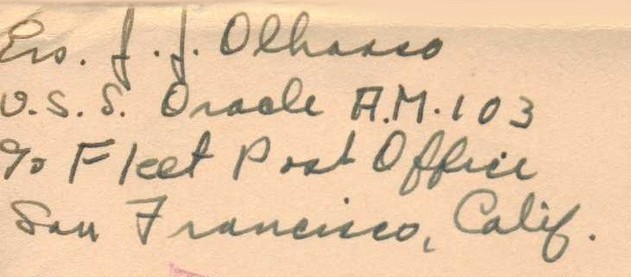 Ens. J. J. Olhasso
U.S.S. Oracle A.M. 103
℅ Fleet Post Office
San Francisco, Calif.